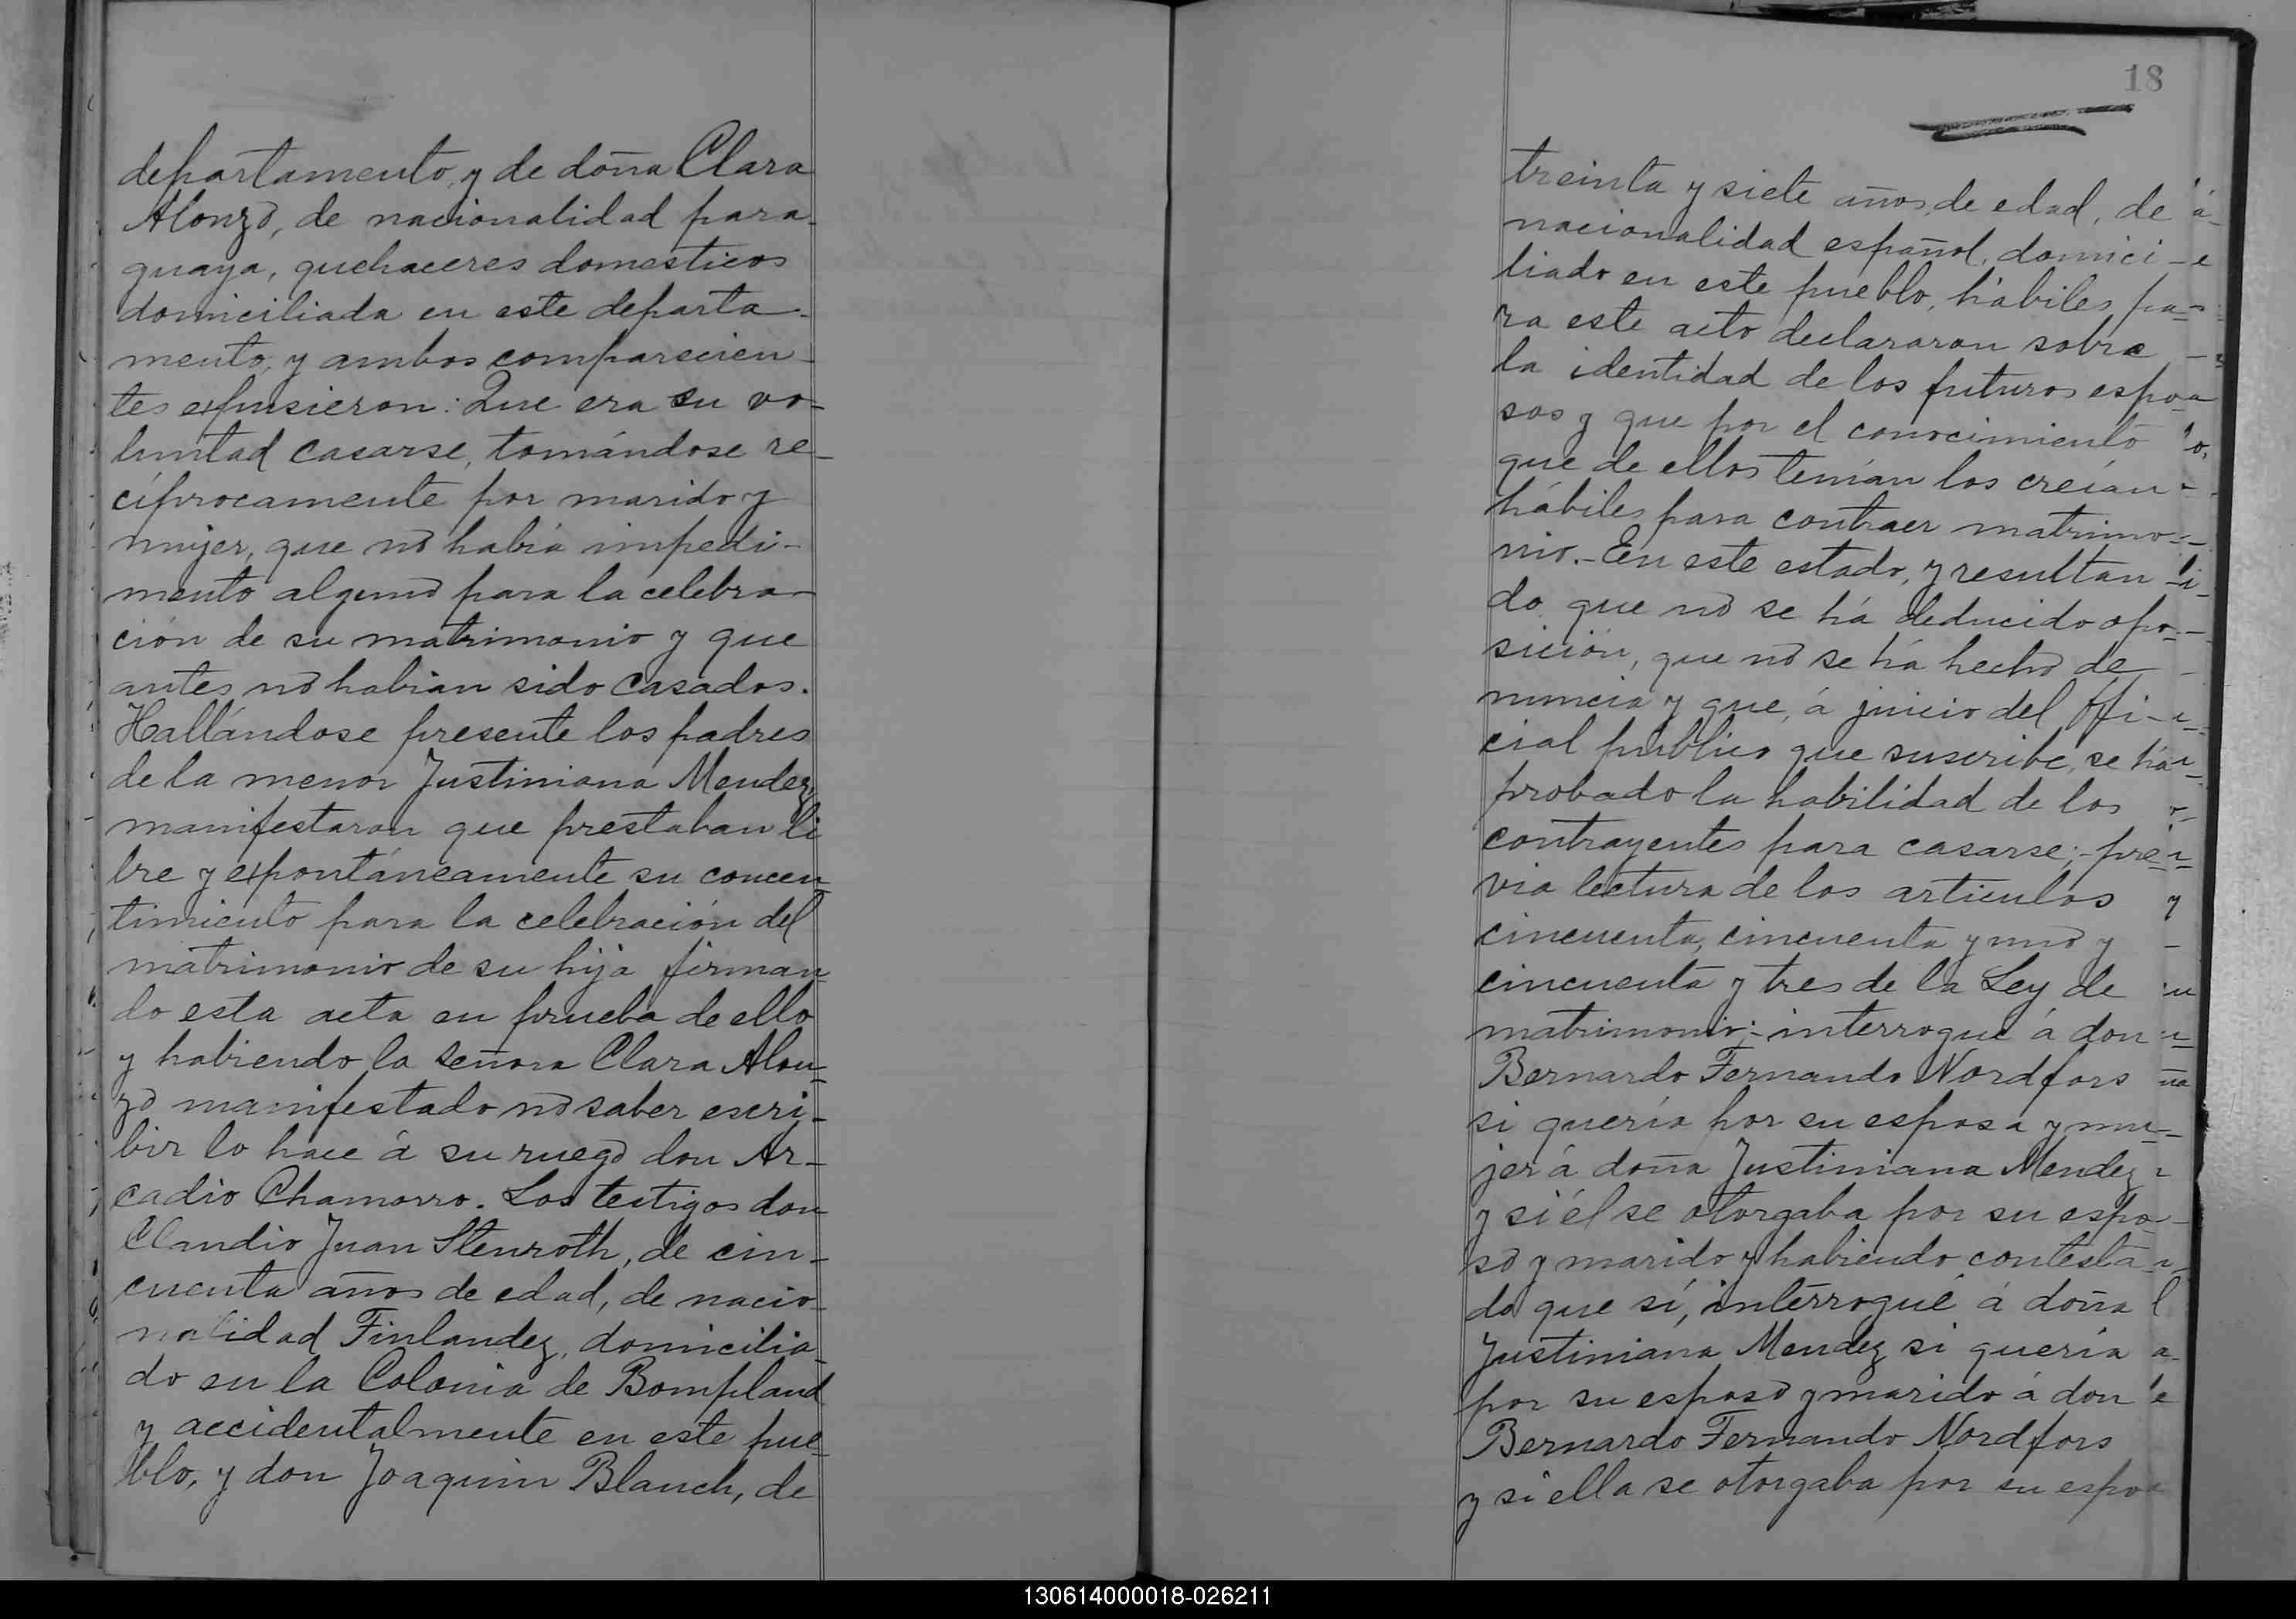 departamento, y de doña Clara
Alonzo, de nacionalidad para-
guaya, quehaceres domesticos
domiciliada en este departa-
mento, y ambos comparecien-
tes expusieron: Que era su vo-
luntad casarse, tomándose re-
cíprocamente por marido y
mujer, que no había impedi-
mento alguno para la celebra-
ción de su matrimonio y que
antes no habían sido casados.
Hallándose presente los padres
de la menor Justiniana Mendez,
manifestaron que prestaban li
bre y expontáneamente su concen-
timiento para la celebración del
matrimonio de su hija firman-
do esta acta en prueba de ello
y habiendo la señora Clara Alon-
zo manifestado no saber escri-
bir lo hace á su ruego don Ar-
cadio Chamorro. Los testigos don
Claudio Juan Stenroth, de cin-
cuenta años de edad, de nacio-
nalidad Finlandez, domicilia-
do en la Colonia de Bompland
y accidentalmente en este pue-
blo, y don Joaquin Blanch, de
18
treinta y siete años, de edad, de
nacionalidad español, domici-
liado en este pueblo, hábiles pa-
ra este acto declararon sobre
la identidad de los futuros espo-
sos y que por el conocimiento
que de ellos tenían los creían
hábiles para contraer matrimo-
nio.- En este estado, y resultan-
do que no se há deducido opo-
sición, que no se há hecho de
nuncia y que, á juicio del Ofi-
cial publico que suscribe, se há
probado la habilidad de los
contrayentes para casarse;- pré-
via lectura de los articulos
cincuenta, cincuenta y uno y
cincuenta y tres de la Ley de
matrimonio;- interrogué á don
Bernardo Fernando Nordfors
si quería por su esposa y mu-
jer á doña Justiniana Mendez
y si él se otorgaba por su espo-
so y marido y habiendo contesta-
do que sí, interrogué á doña
Justiniana Mendez si quería
por su esposo y marido á don
Bernardo Fernando Nordfors
y si ella se otorgaba por su espo
130614000018-026211